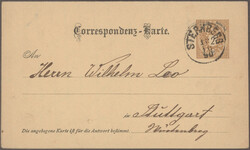 Correspondenz-Karte.
STERNBERG
An
Herrn Wilhelm Leo
in Stuttgart
Die angebogene Karte ist für die Antwort bestimmt
Würtemberg